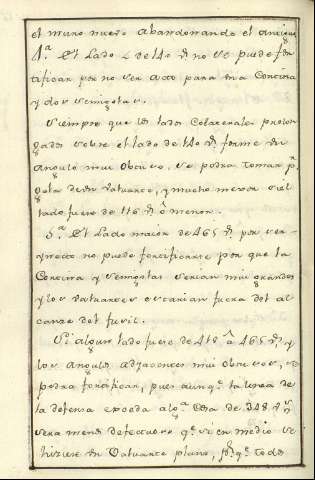 el muro nuevo abandonando el antiguo
4.ª El Lado L de 140 v.s no se puede for
tificar por no ser acto para una Concina
y dos semigolas.
Siempre que los lados Colaterales prolon
gados sobre el lado de 140 v.s forme un
angulo mui obtuso, se podra tomar p.r
gola de un valuarte, y mucho menor si el
lado fuere de 116 v.s ô menor.
5.ª El Lado maior de 465 v.s por ser
y recto no puede fortificarse por que la
Concina y semigolas serian mui grandes
y los valuartes estarian fuera del al
canze del fucil.
Si algun lado fuere de 418 â 465 v.s y
los angulos adjacentes mui obtusos, se
podra fortificar, pues aunq.e la linea de
la defensa exceda alg.a cosa de 348 v.s
sera menos defectuoso q.e si en medio se
hiziese un Valuarte plano, q.e todo